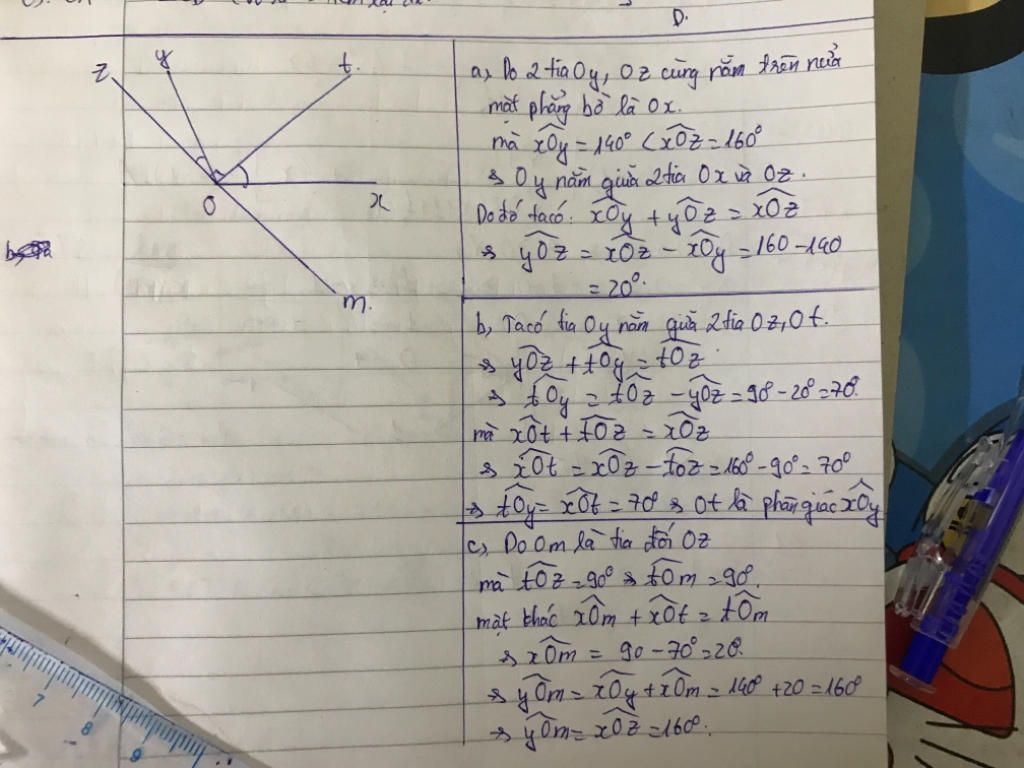 D.
z
y
t.
O
x
m.
a, Do 2 tia Oy, Oz cùng nằm trên nửa
mặt phẳng bờ là Ox.
mà xÔy = 140° < xÔz = 160°
⇒ Oy nằm giữa 2 tia Ox và Oz.
Do đó ta có: xÔy + yÔz = xÔz
⇒ yÔz = xÔz - xÔy = 160 - 140
= 20°.
b, Ta có tia Oy nằm giữa 2 tia Oz, Ot.
⇒ yÔz + tÔy = tÔz
⇒ tÔy = tÔz - yÔz = 90° - 20° = 70°.
mà xÔt + tÔz = xÔz
⇒ xÔt = xÔz - tôz = 160° - 90° = 70°
⇒ tÔy = xÔt = 70° ⇒ Ot là phân giác xÔy
c, Do Om là tia đối Oz
mà tÔz = 90° ⇒ tÔm = 90°.
mặt khác xÔm + xÔt = tÔm
⇒ xÔm = 90 - 70° = 20°.
⇒ yÔm = xÔy + xÔm = 140° + 20 = 160°
⇒ yÔm = xÔz = 160°.
7
8
9